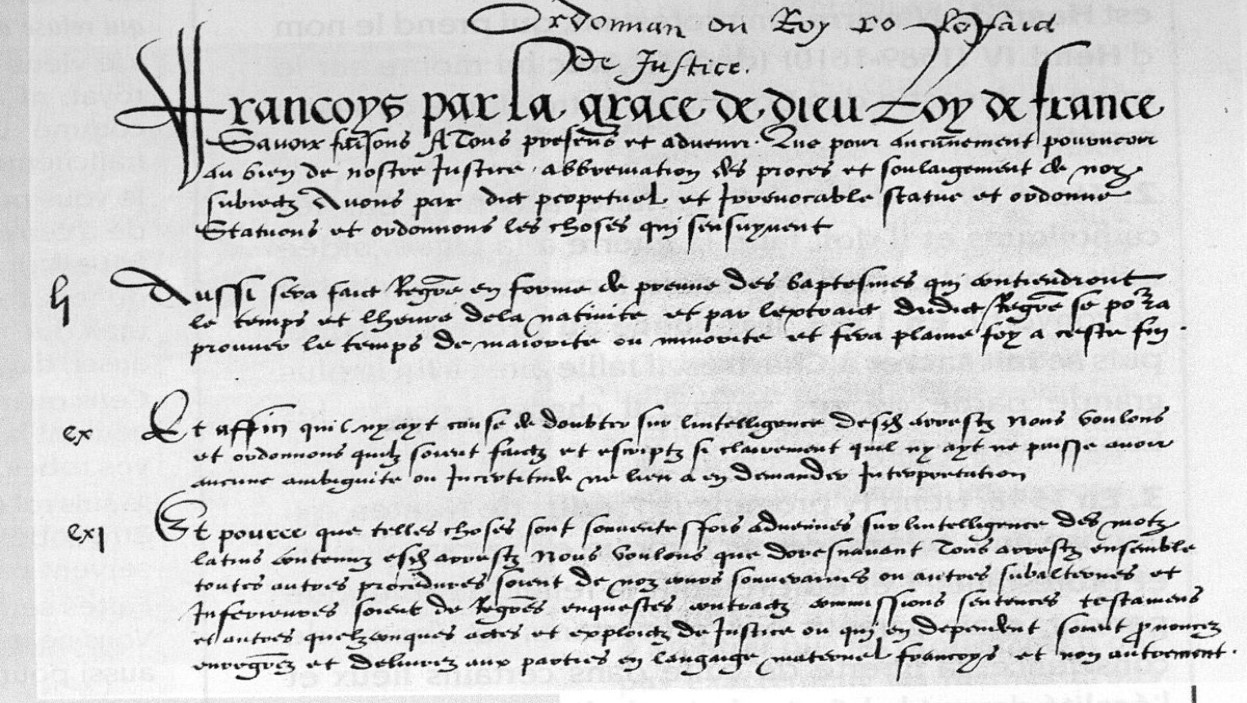 Ordonnan du Roy sur le faict
De Justice.
Francoys par la grace de dieu Roy de france
Savoir faisons A Tous presens et advenir. Que pour aucunement pourveoir
au bien de nostre Justice abbreviation des proces et soulaigement de noz
subiectz Avons par edict perpetuel et Irrevocable statue et ordonne
Statuons et ordonnons les choses qui sensuyvent
lj Aussi sera faict Regrē en forme de preuve des baptesmes qui contiendront
le temps et lheure dela nativite et par lextraict dudict Regrē se porra
prouver le temps de maiorite ou minorite et fera plaine foy a ceste fin.
cx Et affin quil ny ayt cause de doubter sur lintelligence desdz arrestz Nous voulons
et ordonnons quilz soient faictz et escriptz si clairement quil ny ayt ne puisse avoir
aucune ambiguite ou Incertitude ne lieu a en demander Interpretation
cxj Et pource que telles choses sont souventesfois advenues sur lintelligence des motz
latins contenuz esdz arrestz Nous voulons que doresnavant Tous arrestz ensemble
toutes autres procedures soient de noz cours souveraines ou autres subalternes et
Inferieures soient de Regrēs enquestes contractz commissions sentences testamens
et autres quelzconques actes et exploictz de Justice ou qui en dependent soient pronocez
enregrēz et delivrez aux parties en langaige maternel francoys et non autrement.